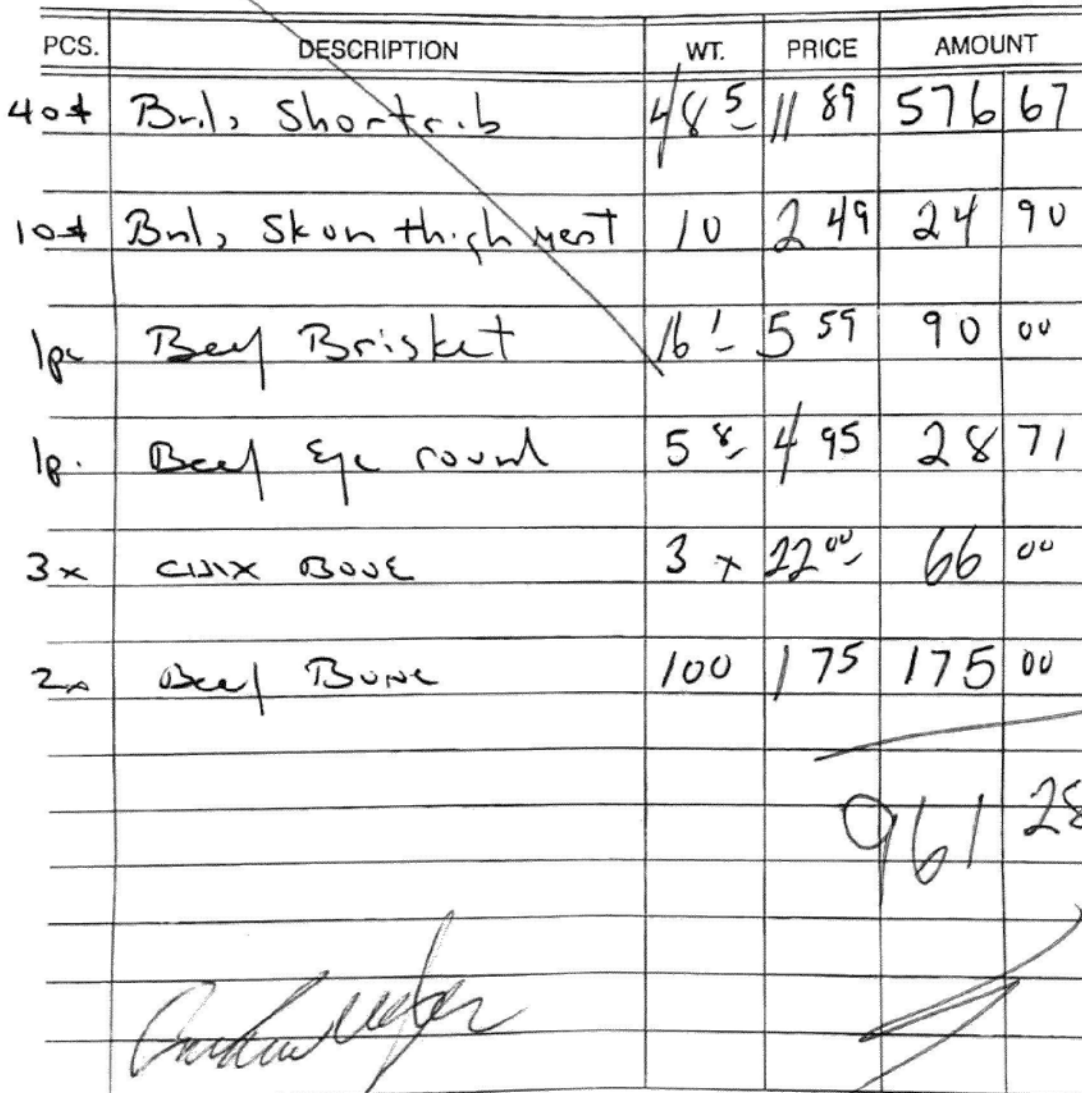 PCS. DESCRIPTION WT. PRICE AMOUNT
40# Bnls Shortrib 48 5 11 89 576 67
10# Bnls Sk on thigh meat 10 2 49 24 90
1pc Beef Brisket 16 1 5 59 90 00
1p. Beef Eye round 5 8 4 95 28 71
3x CHIX BONE 3 x 22 00 66 00
2x Beef Bone 100 1 75 175 00
961 28